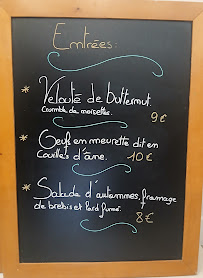 Entrées:
* Velouté de butternut.
Crumble de noisettes.
9€
* Oeuf en meurette dit en
Couilles d'âne. 10€
* Salade d'automnes, fromage
de brebis et lard fumé.
8€